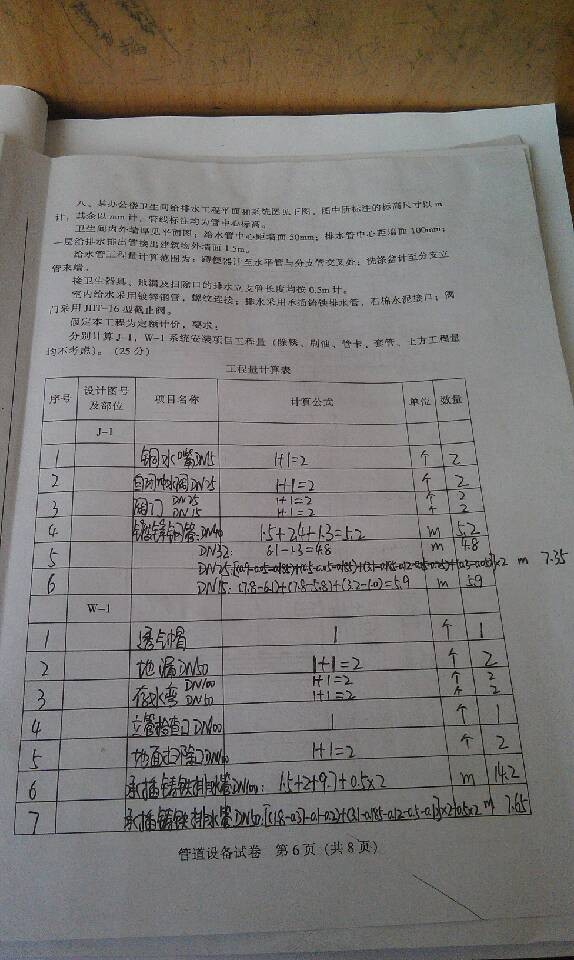 八、某办公楼卫生间给排水工程平面和系统图见下图，图中所标注的标高尺寸以 m
计，其余以 mm 计，管线标注均为管中心标高。
卫生间内外墙厚见平面图；给水管中心距墙面 50mm；排水管中心距墙面 100mm；
一层给排水部出管接出建筑物外墙面 1.5m。
给水管工程量计算范围为：蹲便器计至水平管与分支管交叉处；洗涤盆计至分支立
管末端。
接卫生器具、地漏及扫除口的排水立支管长度均按 0.5m 计。
室内给水采用镀锌钢管，螺纹连接；排水采用承插铸铁排水管，石棉水泥接口；阀
门采用 J11T-16 型截止阀。
假定本工程为定额计价，要求：
分别计算 J-1、W-1 系统安装项目工程量（除锈、刷油、管卡、套管、土方工程量
均不考虑）。（25 分）
工程量计算表
序号 设计图号及部位 项目名称 计算公式 单位 数量
J-1
1 铜水嘴DN15 1+1=2 个 2
2 自闭冲水阀DN25 1+1=2 个 2
3 阀门 DN25 1+1=2 个 2
DN15 1+1=2 个 2
4 镀锌钢管:DN40 1.5+2.4+1.3=5.2 m 5.2
5 DN32: 6.1-1.3=4.8 m 4.8
DN25: ×2 m 7.35
6 DN15: (7.8-6.1)+(7.8-5.8)+(3.2-1.0)=5.9 m 5.9
W-1
1 透气帽 1 个 1
2 地漏DN50 1+1=2 个 2
3 存水弯 DN100 1+1=2 个 2
DN50 1+1=2 个 2
4 立管检查口DN100 1 个 1
5 地面扫除口DN100 1+1=2 个 2
6 承插铸铁排水管DN100: 1.5+2+9.7+0.5×2 m 14.2
7 承插铸铁排水管DN50: m 7.65
管道设备试卷 第 6 页（共 8 页）